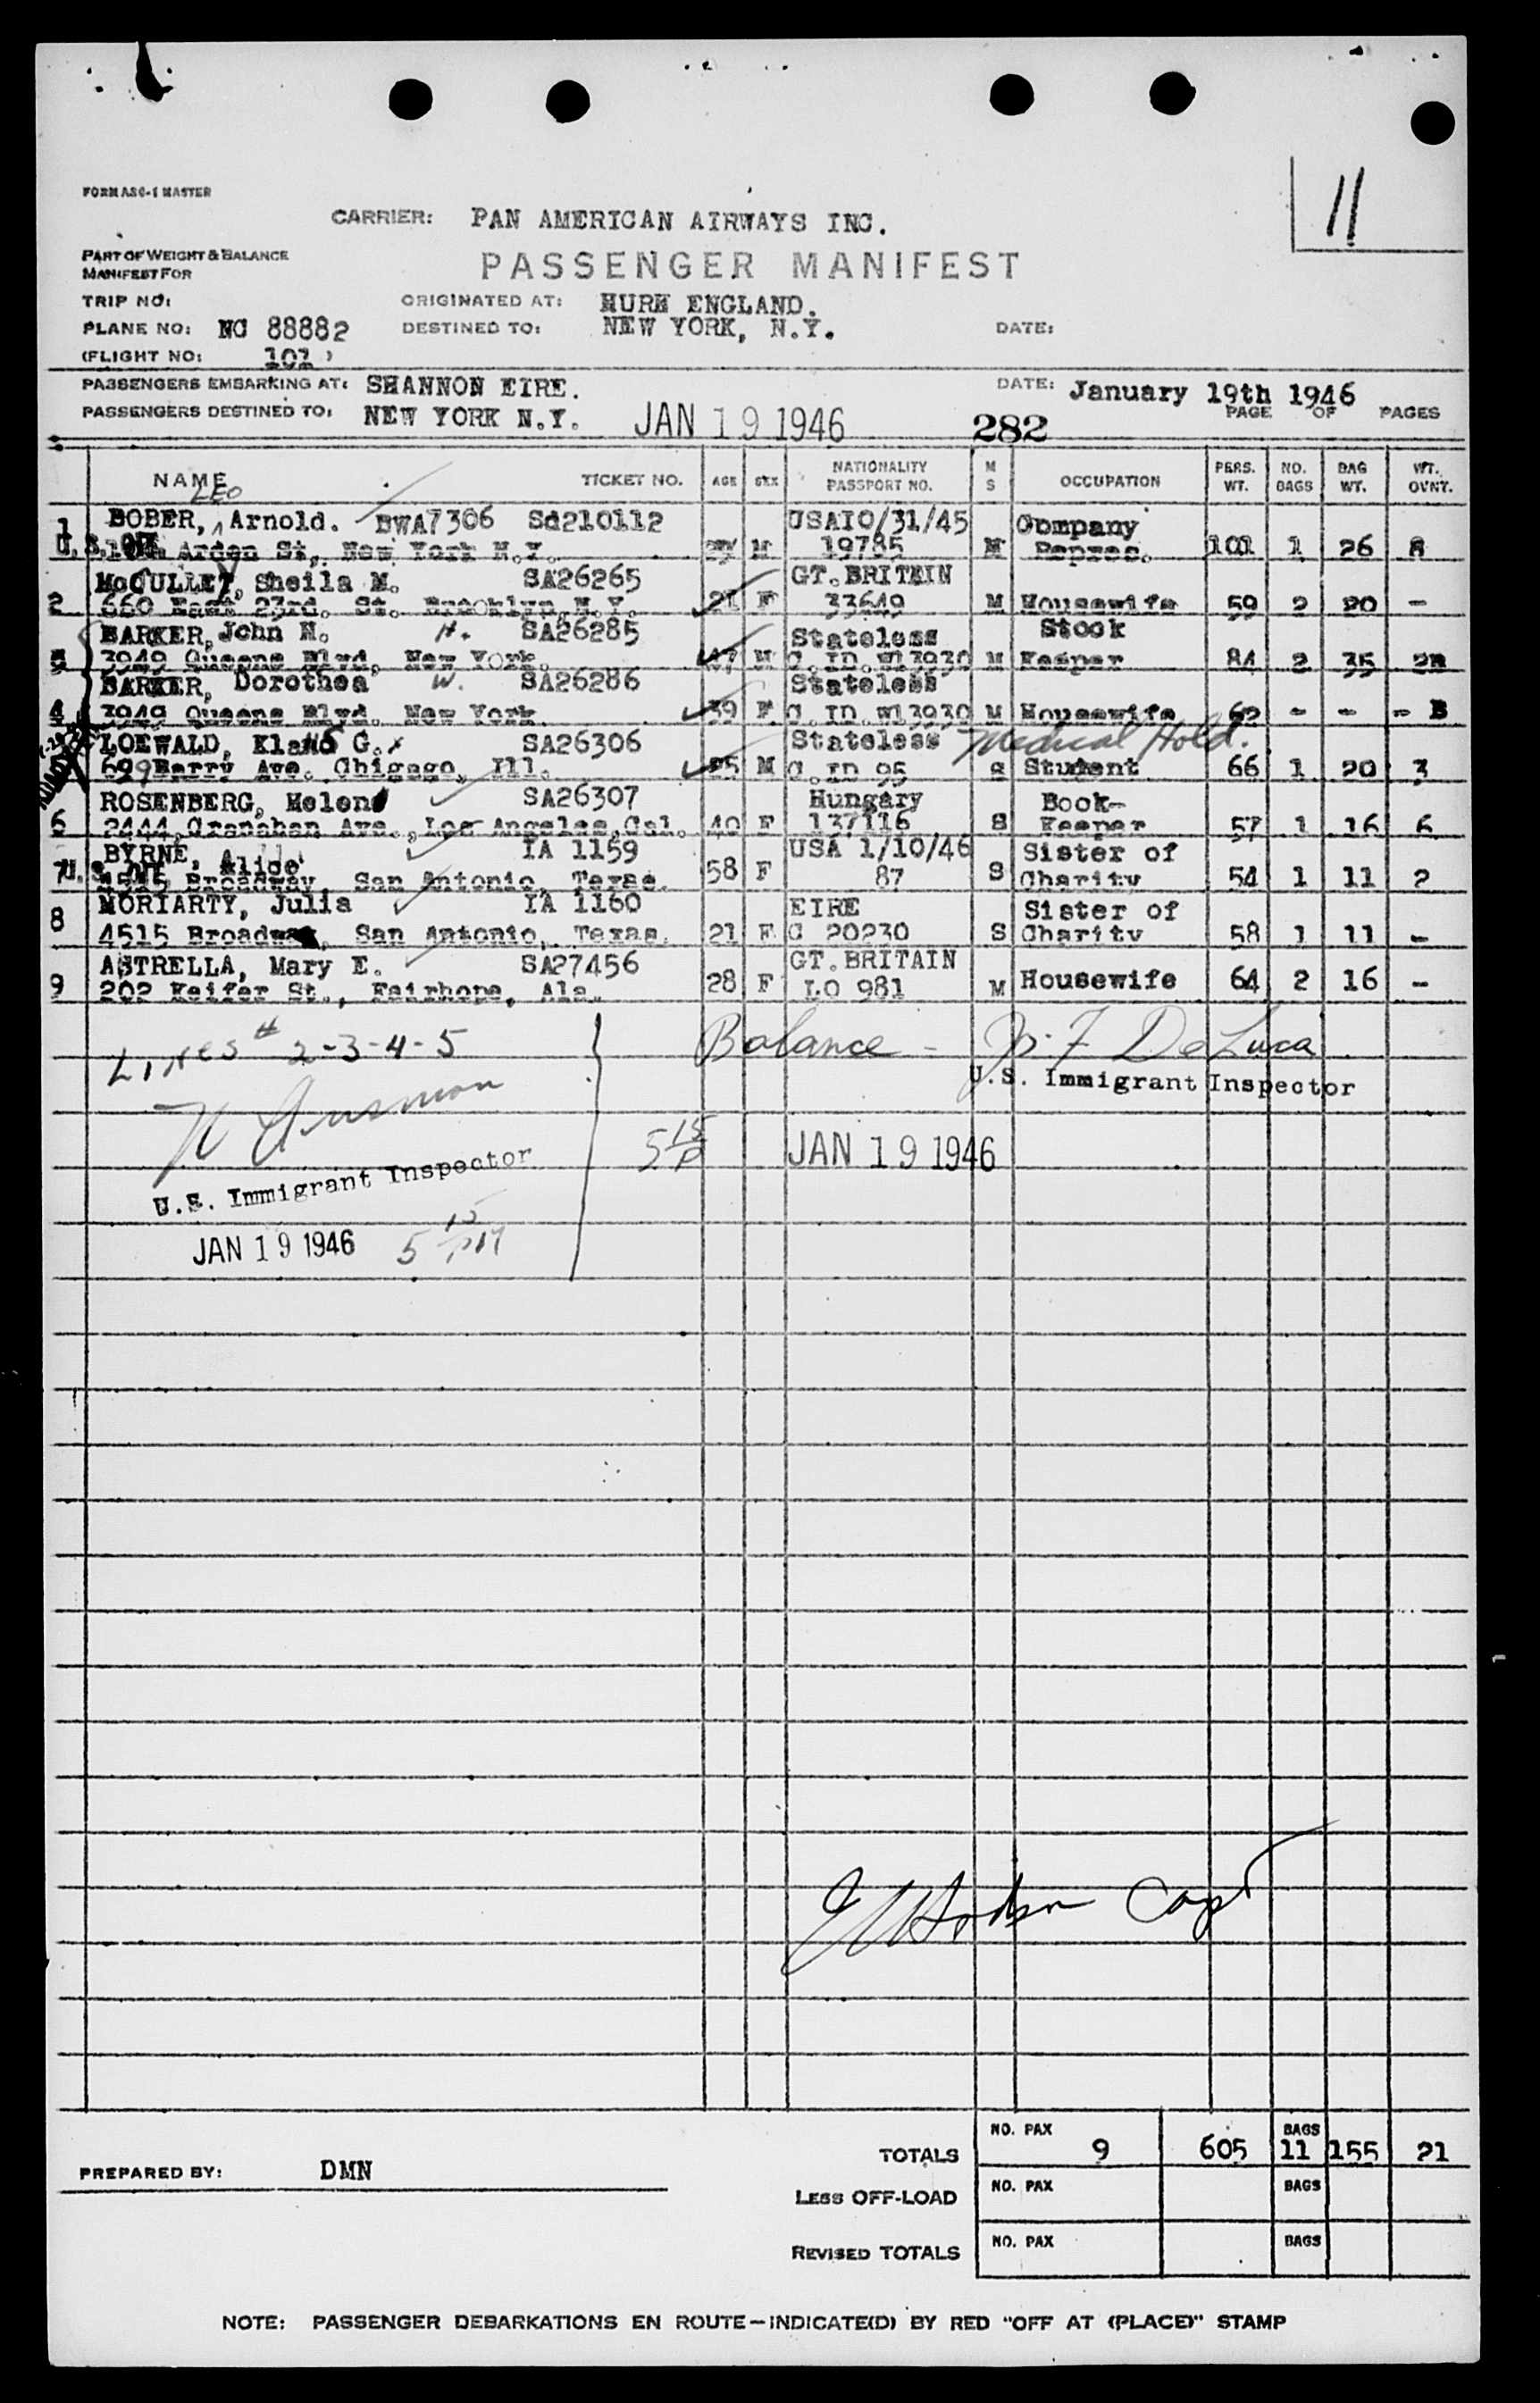 11
FORM ASC-1 MASTER
CARRIER: PAN AMERICAN AIRWAYS INC.
PART OF WEIGHT & BALANCE
MANIFEST FOR
PASSENGER MANIFEST
TRIP NO: ORIGINATED AT: HURN ENGLAND.
PLANE NO: NC 88882 DESTINED TO: NEW YORK, N.Y. DATE:
(FLIGHT NO: 101 )
PASSENGERS EMBARKING AT: SHANNON EIRE. DATE: January 19th 1946
PASSENGERS DESTINED TO: NEW YORK N.Y. JAN 19 1946 282 PAGE OF PAGES
NAME TICKET NO. AGE SEX NATIONALITY PASSPORT NO. M S OCCUPATION PERS. WT. NO. BAGS BAG WT. WT. OVNT.
LEO
1 BOBER, Arnold. BWA7306 Sd210112 USA10/31/45 Company
Arden St, New York N.Y. M 19785 M Repres. 101 1 26 8
McCULLEY, Sheila M. SA26265 GT.BRITAIN
2 660 East 23rd. St. Brooklyn,N.Y. 21 F 33649 M Housewife 59 2 20 -
BARKER, John N. H. SA26285 Stateless Stock
3 3949 Queens Blvd, New York. 47 M C.ID.W13930 M Keeper 84 2 35 2B
BARKER, Dorothea W. SA26286 Stateless
4 3949 Queens Blvd. New York. 39 F C.ID.W13930 M Housewife 62 - - - B
LOEWALD, Klaus G. SA26306 Stateless Medical Hold.
699 Barry Ave. Chigago, Ill. 25 M C.ID 95 S Student 66 1 20 3
ROSENBERG, Helene SA26307 Hungary Book-
6 2444, Granahan Ave., Los Angeles,Cal. 40 F 137116 S Keeper 57 1 16 6
BYRNE, Alice IA 1159 USA 1/10/46 Sister of
7 4515 Broadway, San Antonio, Texas. 58 F 87 S Charity 54 1 11 2
MORIARTY, Julia IA 1160 EIRE Sister of
8 4515 Broadway, San Antonio, Texas. 21 F C 20230 S Charity 58 1 11 -
ASTRELLA, Mary E. SA27456 GT.BRITAIN
9 202 Keifer St., Fairhope, Ala. 28 F LO 981 M Housewife 64 2 16 -
Lines # 2-3-4-5 Balance - De Luca
U.S. Immigrant Inspector
5 15 JAN 19 1946
U.S. Immigrant Inspector
JAN 19 1946 5 15 PM
Capt
TOTALS NO. PAX 9 605 BAGS 11 155 21
PREPARED BY: DMN
LESS OFF-LOAD NO. PAX BAGS
REVISED TOTALS NO. PAX BAGS
NOTE: PASSENGER DEBARKATIONS EN ROUTE—INDICATE(D) BY RED "OFF AT (PLACE)" STAMP